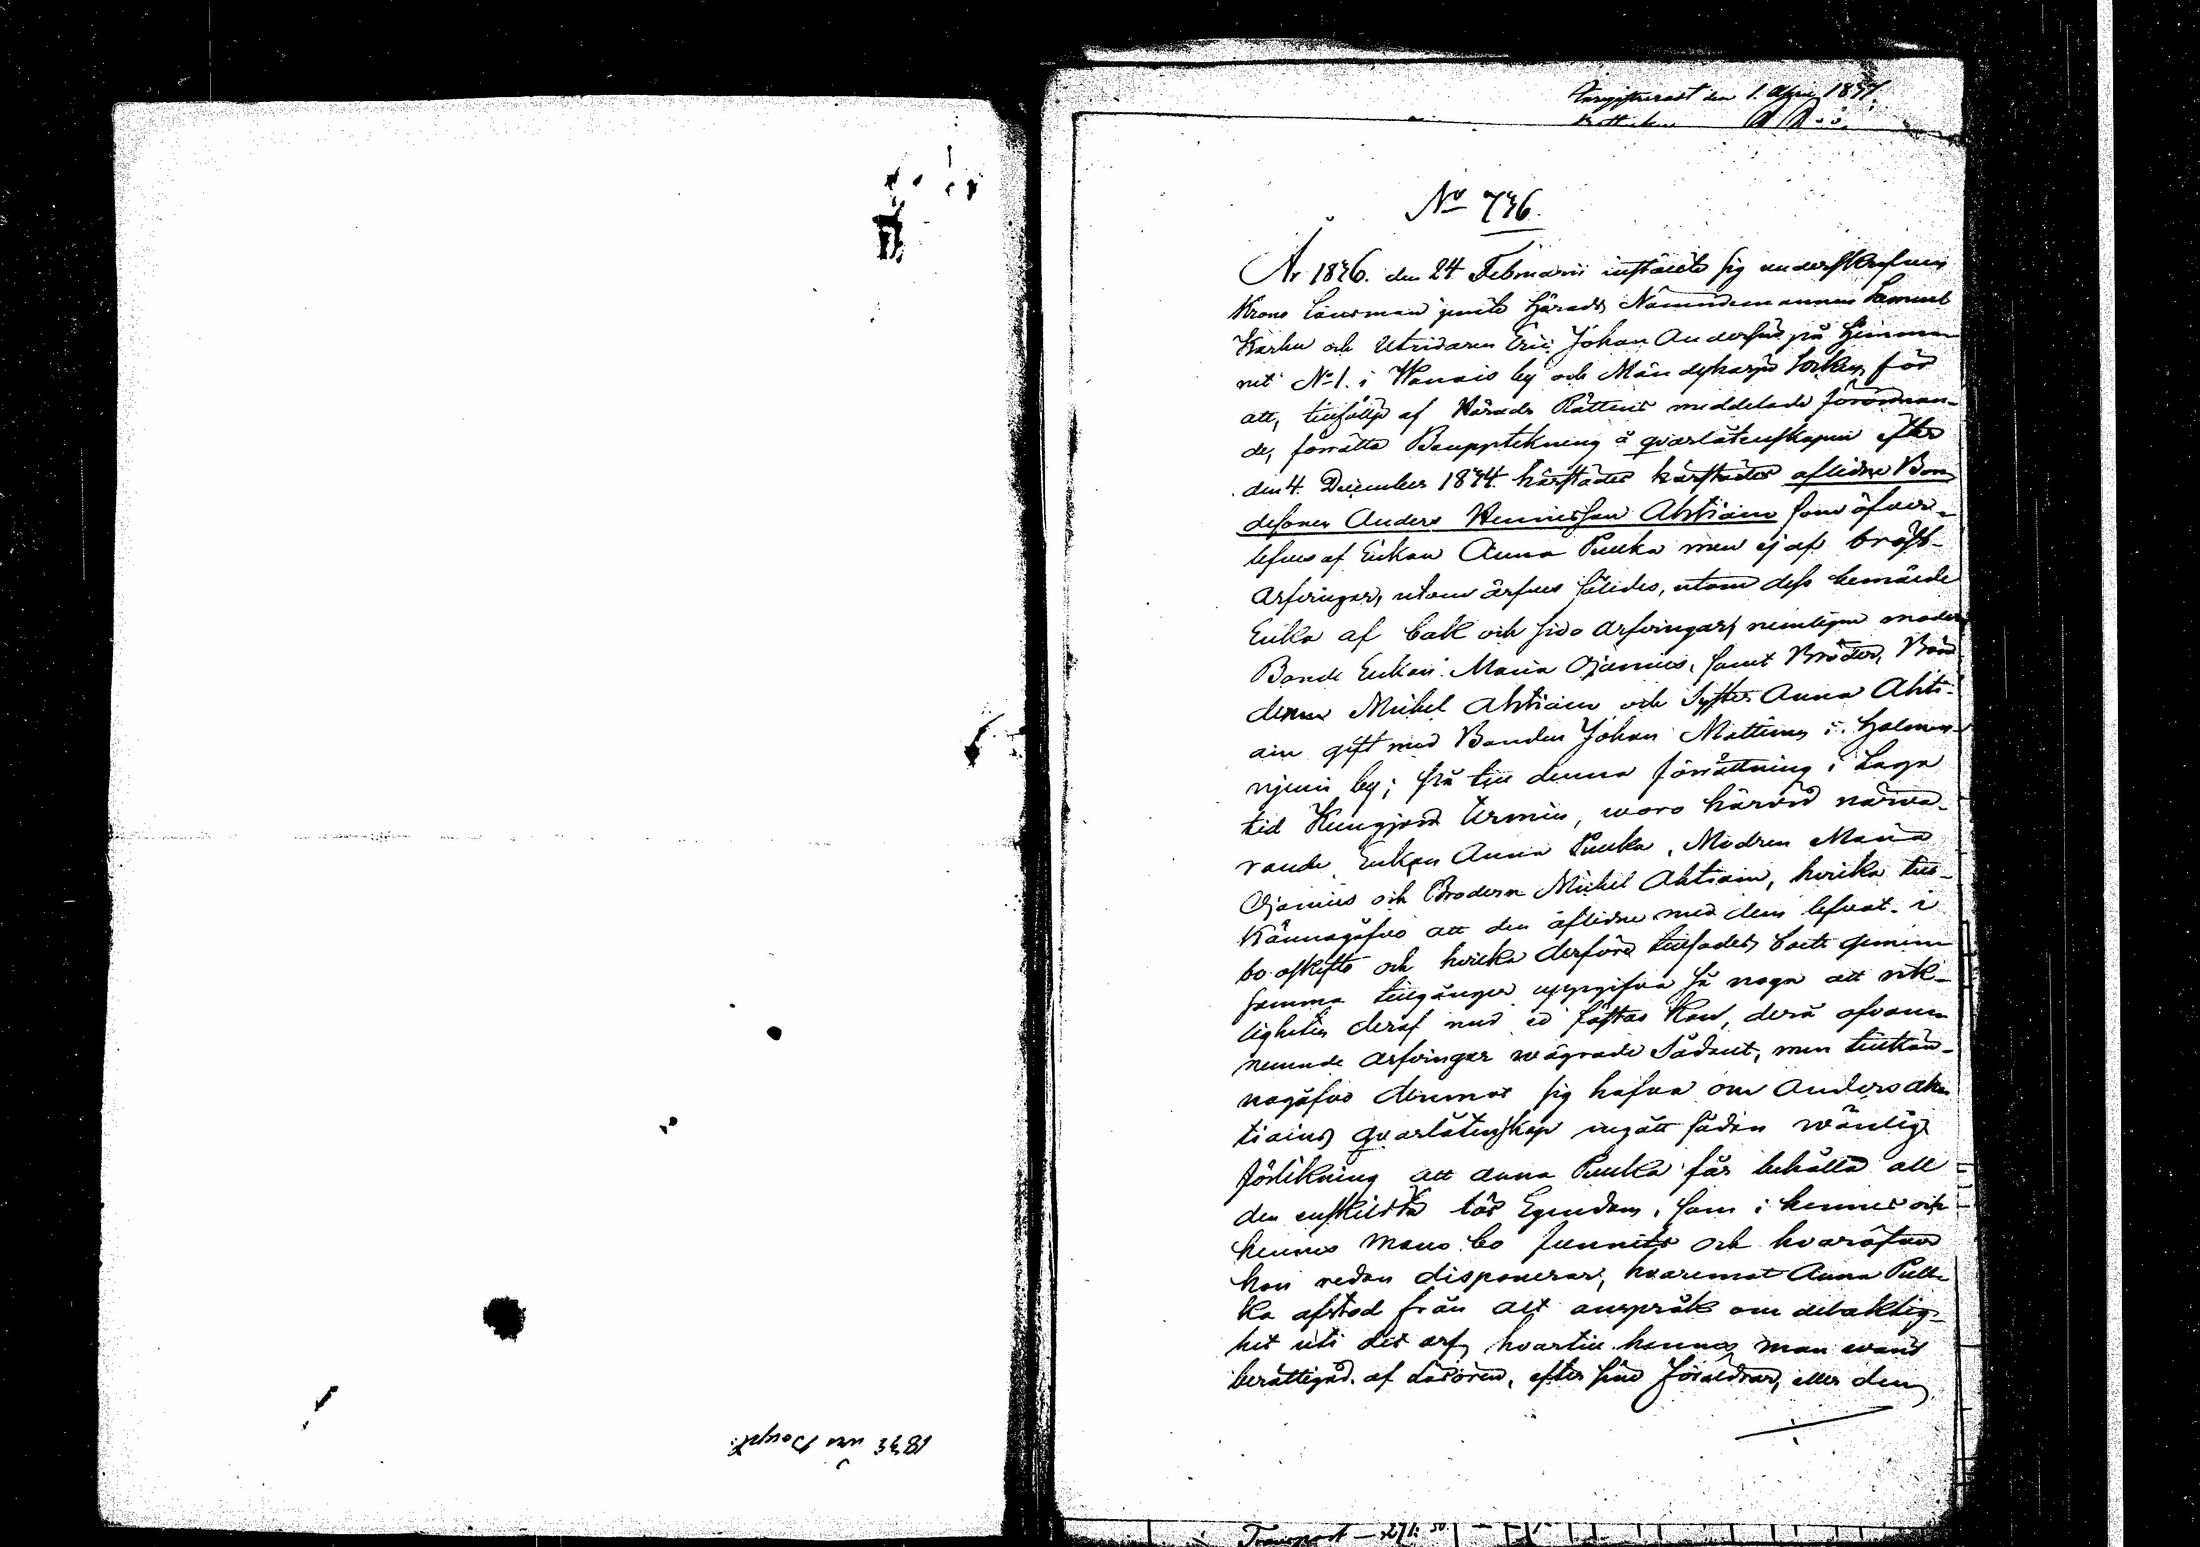 1877 års Bouppt:
den 1. April 1877.
No 736.
År 1876. den 24 Februarii instälde sig underskrefven
Krono Länsman jemte Härads Nämndemannen Samuel
Karhu och Utridaren Eric Johan Andersin på Hemma-
net No 1. i i by och Mändyharju Socken, för
att, tillfölje af Härads Rättens meddelade förordnan-
de, förrätta Bouppteckning å qvarlåtenskapen efter
den 4. December 1874. härstädes härstädes aflidne Bon-
desonen Anders Henricsson Ahtiain som öfver-
lefves af Enkan Anna Pulka men ej af bröst-
arfvingar, utom ärfves således, utom dess bemälde
Enka af bak och sido arfvingar, nemligen moder
Bonde Enkan Maria Ojanius, samt Broder, Bon-
den Mickel Ahtiain och Syster Anna Ahti-
ain gift med Bonden Johan Mattinen i Halmen-
njemi by; På till denna förrättning i Laga
tid Kungjord Termin, woro härvid närva-
rande Enkan Anna Pulka, Modren Maria
Ojanius och Brodern Mickel Ahtiain, hvilka till-
kännagåfvo att den aflidne med dem lefvat i
bo oskifto och hvilka derföre tillsades boets gemen-
samma tillgångar uppgifva så noga att rik-
tigheten deraf med ed fästas kan, derå ofvan-
nemnde arfvingar wägrade sådant, men tillkän-
nagåfvo deremot sig hafva om Anders Ah-
tiains qvarlåtenskap ingått sådan wänlig
förlikning att Anna Pulka får behålla all
den enskildta lös Egendom, som i hennes och
hennes mans bo funnits och hvaröfver
hon redan disponerar, hvaremot Anna Pull-
ka afstod från alt anspråk om delaktig-
het uti det arf, hvartill hennes man warit
berättigad af Lösören, efter sine föräldrar, eller den
Transport — 271: 50